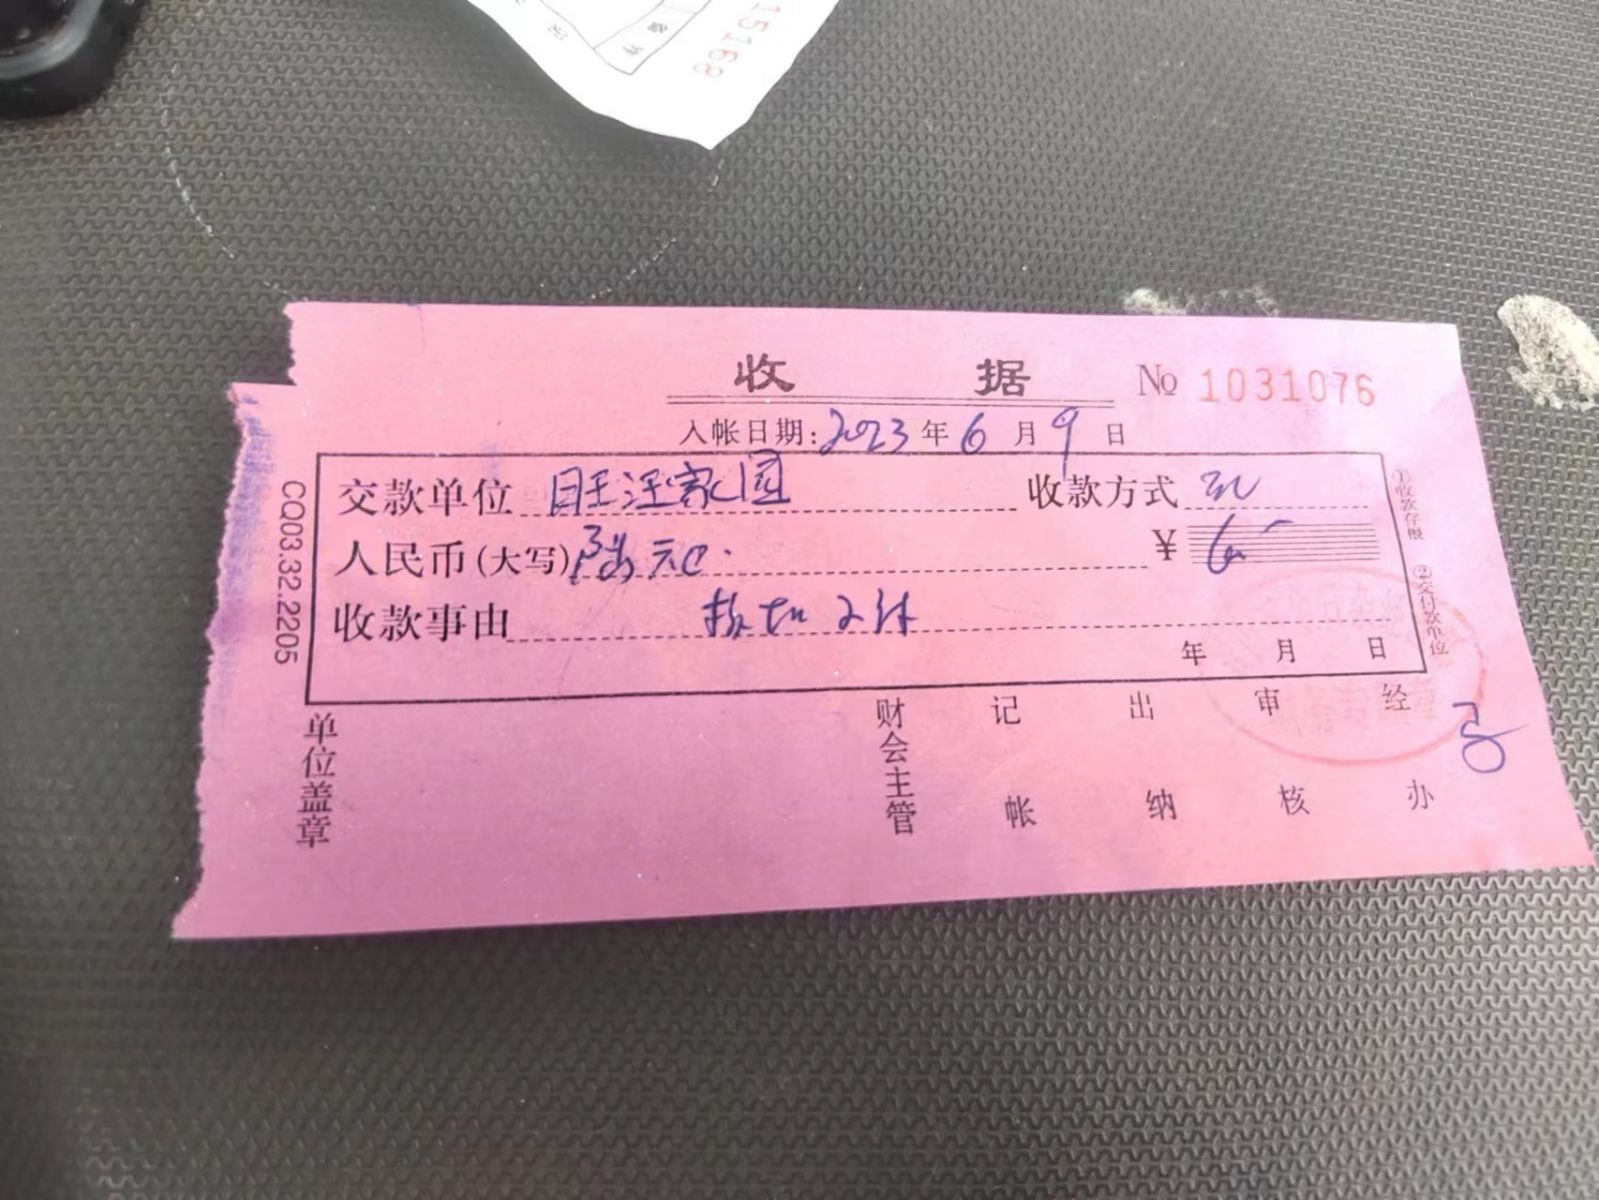 15168
收据 № 1031076
入帐日期: 2023 年 6 月 9 日
交款单位 旺汪家园 收款方式
人民币(大写) 陆元 ¥ 6
收款事由
年 月 日
①收款存根
②交付款单位
CQ03.32.2205
单位盖章
财会主管
记帐
出纳
审核
经办